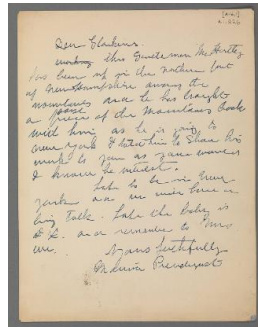 Dear Glackens
this Gentleman Mr Hartley
has been up in the northern part
of New Hampshire among the
mountains and he has brought
a piece of the mountains back
with him, as he is going to
New York I told him to show his
work to you as you would
I know be
to be in New
York and we will have a
big talk. Hope the baby is
O.K. and remember to Mrs
Yours faithfully
Maurice Prendergast